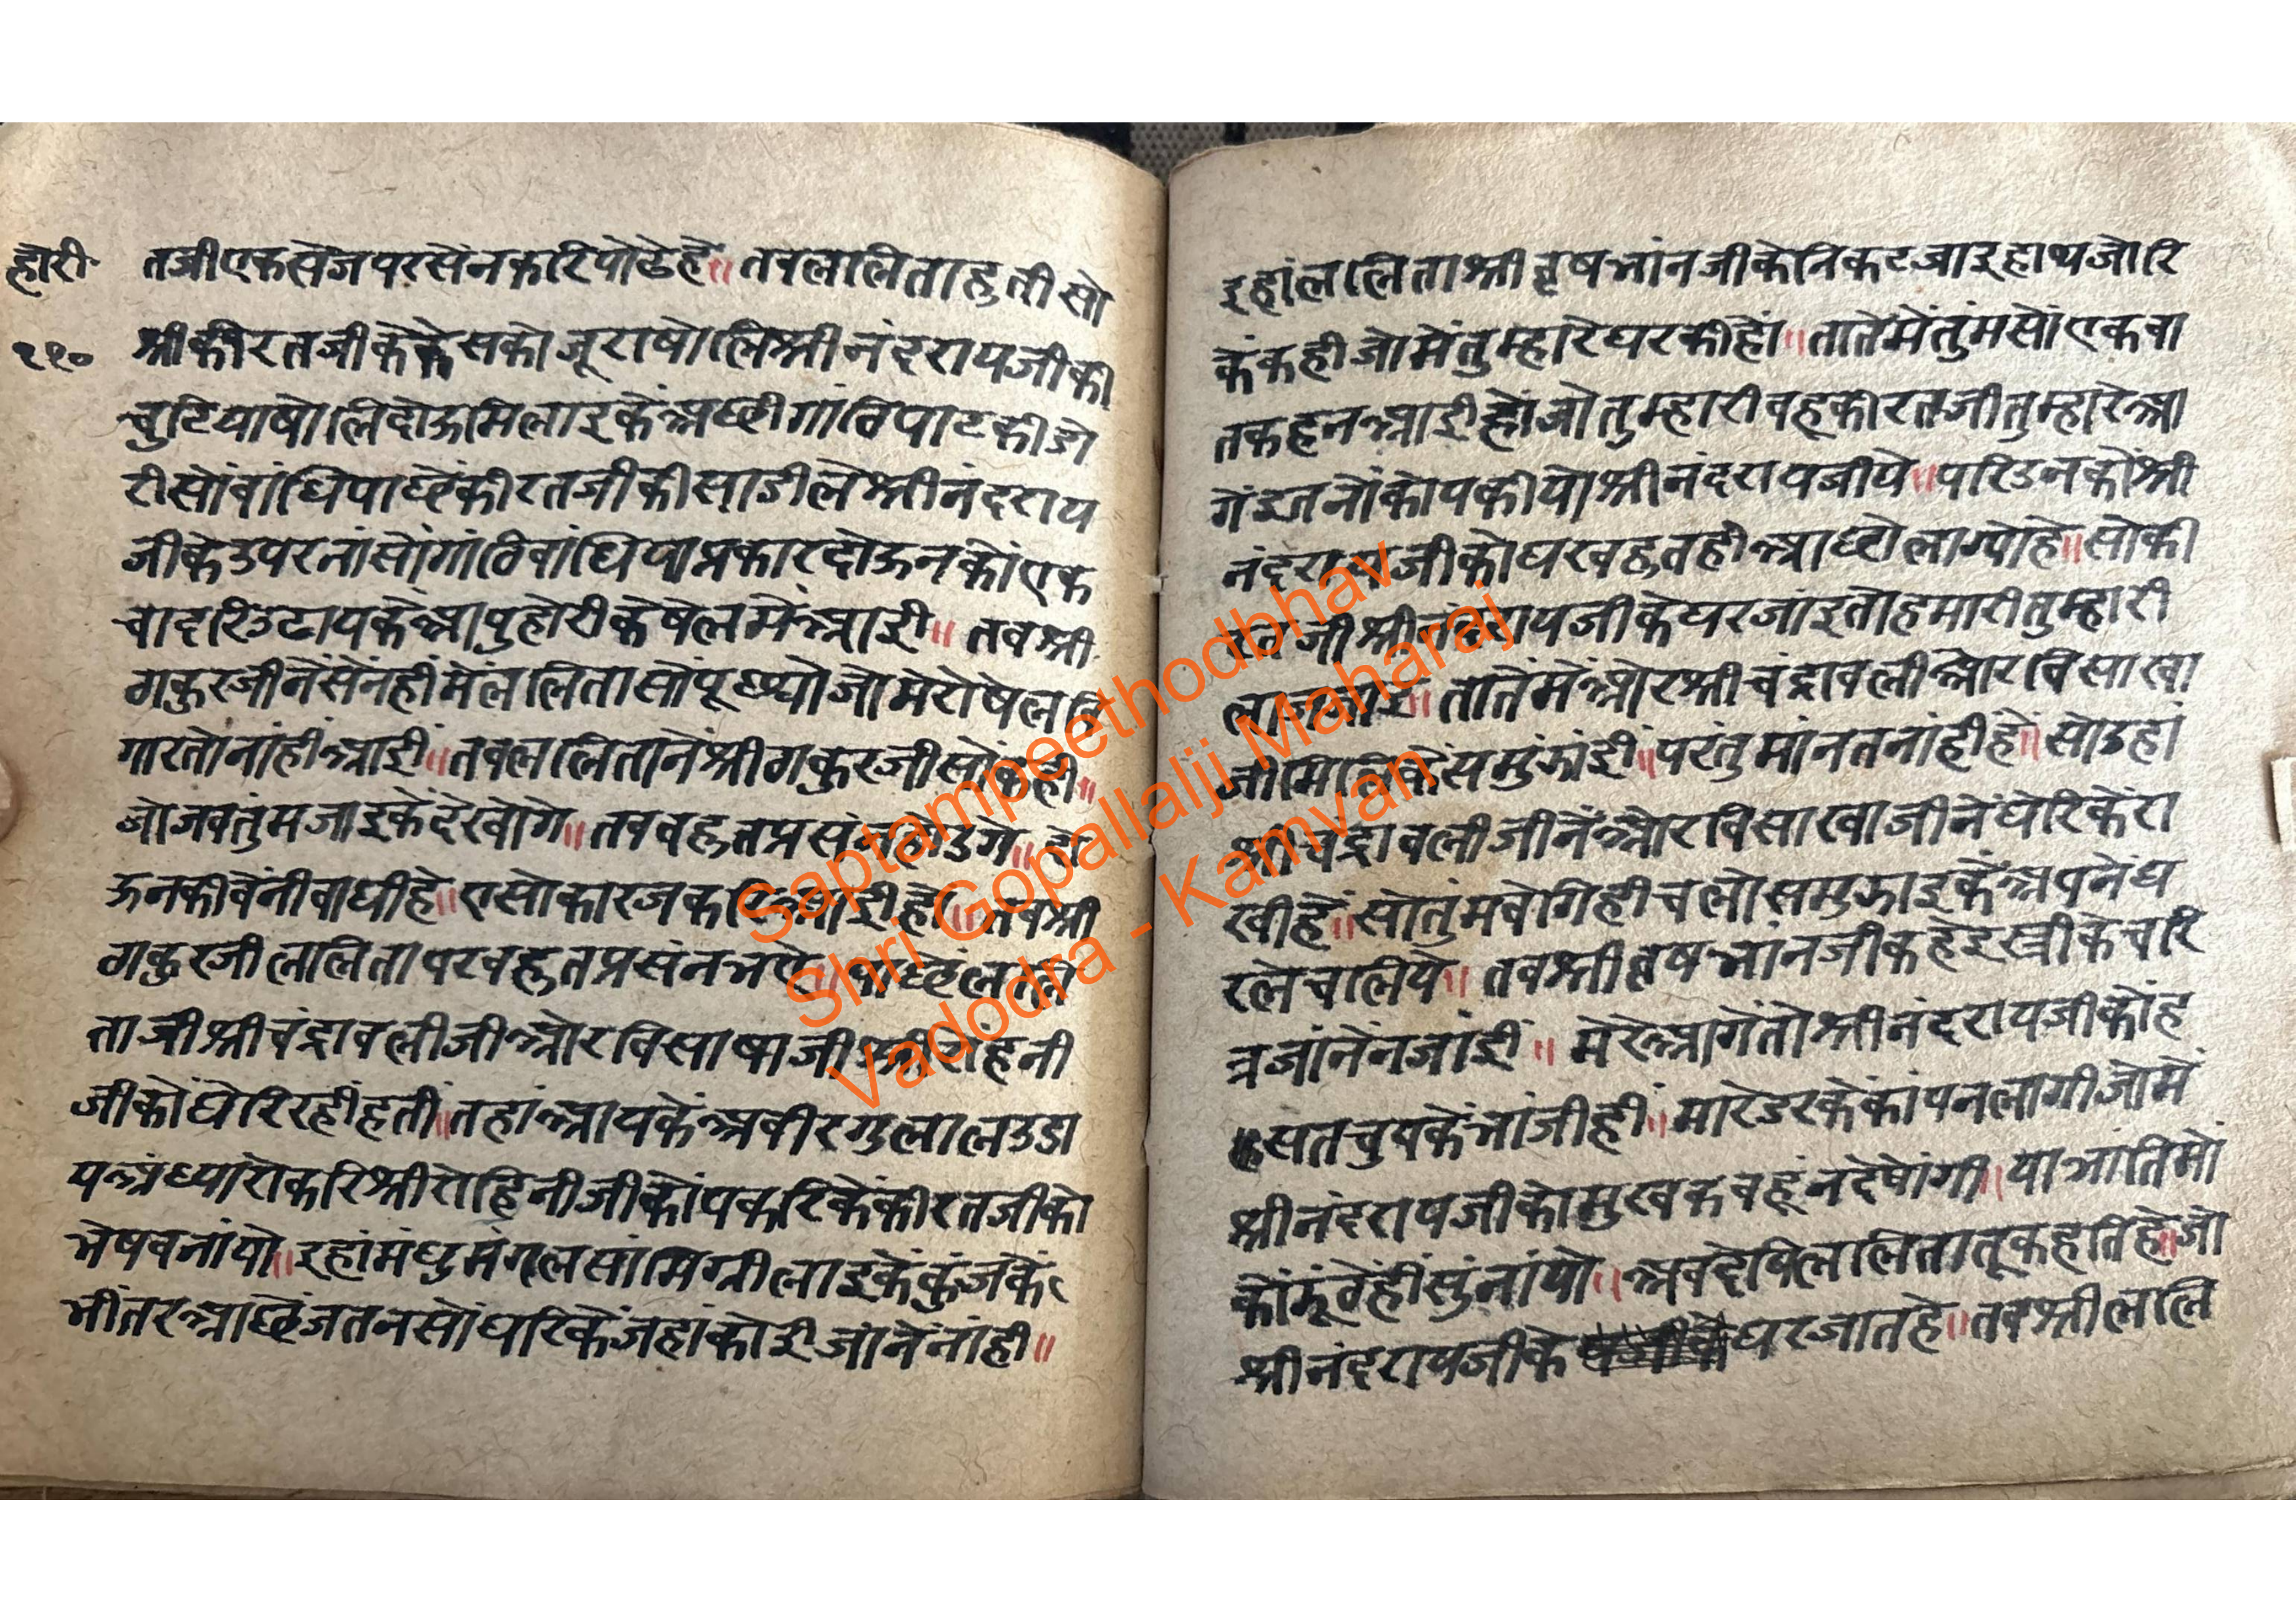 होरी
११०
तजी एक सेज पर सेंन करि पोढेहें॥ तब ललिता हुती सो
श्री कीरतजी के केस को जूरा षोलि श्री नंदरायजी की
चुटिया षोलि दोऊ मिलाइ कें अछी गांठि पाट की डो
री सों बांधि पाछें कीरतजी की साडी ले श्री नंदराय
जी के उपरनां सों गांठि बांधि या प्रकार दोऊन कों एक
चादरि उढाय कें आपु होरी के षेल में आई॥ तब श्री
ठाकुरजी नें सेंन ही में ललिता सों पूछ्यो जो मेरो षेल बि
गारतो नांही आई॥ तब ललिता नें श्री ठाकुरजी सों कही॥
जो जब तुंम जाइ कें देखोगे॥ तब बहुत प्रसंन होउगे॥ दो
ऊन की बेंनी बांधी हे॥ एसो कारज करि आई हों॥ तब श्री
ठाकुरजी ललिता पर बहुत प्रसंन भए॥ पाछें ललि
ताजी श्री चंद्रावलीजी ओर विसाषाजी श्री रोहनी
जी कों घेरि रही हती॥ तहां आय कें अबीर गुलाल उडा
य अंध्यारो करि श्री रोहिनीजी कों पकरि कें कीरतजी को
भेष बनांयो॥ इहां मंधुमंगल सांमिग्री लाइ कें कुंज कें
भींतर आछें जतन सों धरि कें जहां कोई जांनें नांही॥
इहां ललिता श्री वृषभांनजी के निकट जाइ हाथ जोरि
कें कही जो में तुम्हारे घर की हों॥ तातें में तुंम सों एक बा
त कहन आई हों जो तुम्हारी बहू कीरतजी तुम्हारे आ
गें इतनों कोप कीयो श्री नंदरायजी पे॥ परि उन कों श्री
नंदरायजी को घर बहुत ही आछो लाग्यो हे॥ सो की
रतजी श्री नंदरायजी के घर जांइ तो हमारी तुम्हारी
लाज जाइ॥ तातें में ओर श्री चंद्रावली ओर विसाखा
जी मिलि कें समुंझांई॥ परंतु मांनत नांही हें॥ सो उहां
श्री चंद्रावलीजी नें ओर विसाखाजी नें घेरि कें रा
खी हें॥ सो तुंम बेगि ही चलो समुझाइ कें अपनें घ
र ले चलिये॥ तब श्री वृषभांनजी कहे इस्त्री के चरि
त्र जांनें न जांई॥ मेरे आगें तो श्री नंदरायजी कों ह
सत चुप कें भांजी ही॥ मारे डर के कांपन लागी जो में
श्री नंदरायजी को मुख कबहूं न देषोंगी॥ या भांति मो
कों झूंठें हीं सुंनांयो॥ अब देषि ललिता तू कहति हे॥ जो
श्री नंदरायजी के घर जात हे॥ तब श्री ललि
Saptampeethodbhav
Shri Gopallalji Maharaj
Vadodra - Kamvan